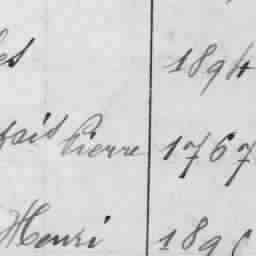 es 1894
fait Pierre 1767
Henri 189